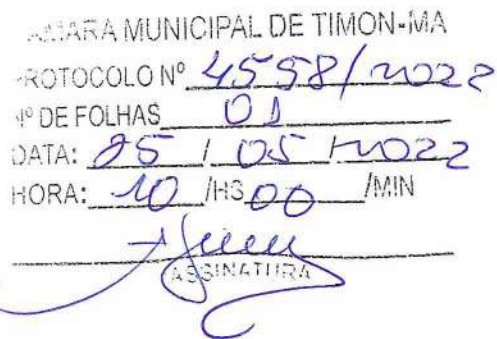 CÂMARA MUNICIPAL DE TIMON-MA
PROTOCOLO Nº 4558/2022
Nº DE FOLHAS 01
DATA: 25 / 05 / 2022
HORA: 10 /HS 00 /MIN
ASSINATURA